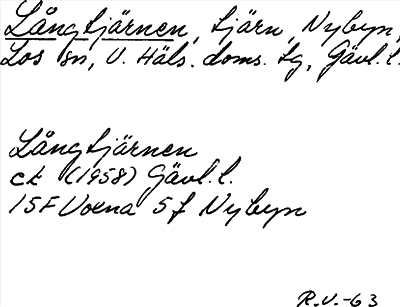 Långtjärnen, tjärn, Nybyn,
Los sn, V. Häls. doms. tg, Gävl. l.
Långtjärnen
ek (1958) Gävl. l.
15F Voxna 5f Nybyn
R.V.-63